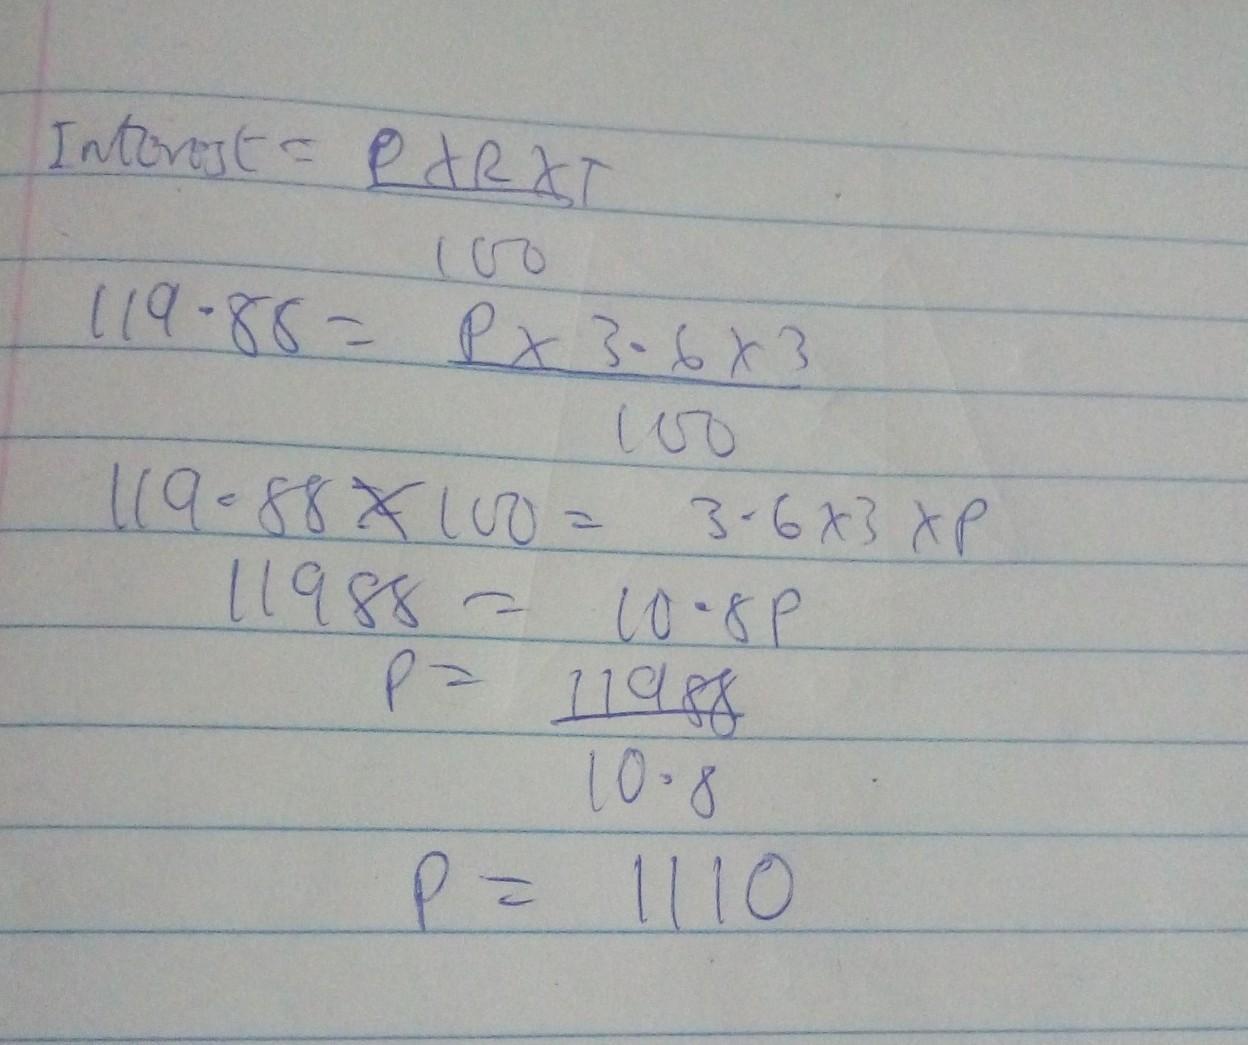 Interest = P x R x T
100
119.88 = P x 3.6 x 3
100
119.88 x 100 = 3.6 x 3 x P
11988 = 10.8P
P = 11988
10.8
P = 1110